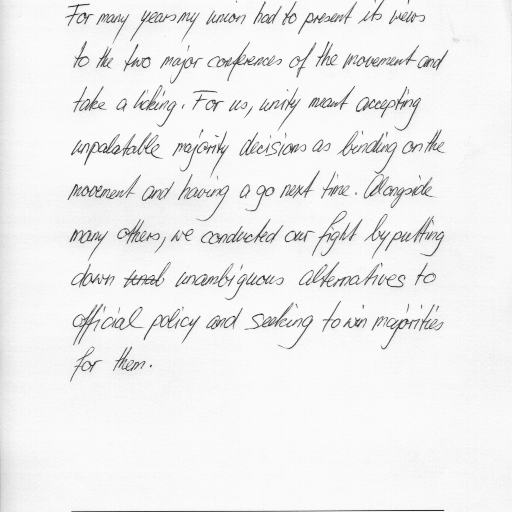 For many years my union had to present its views
to the two major conferences of the movement and
take a licking. For us, unity meant accepting
unpalatable majority decisions as binding on the
movement and having a go next time. Alongside
many others, we conducted our fight by putting
down unambiguous alternatives to
official policy and seeking to win majorities
for them.